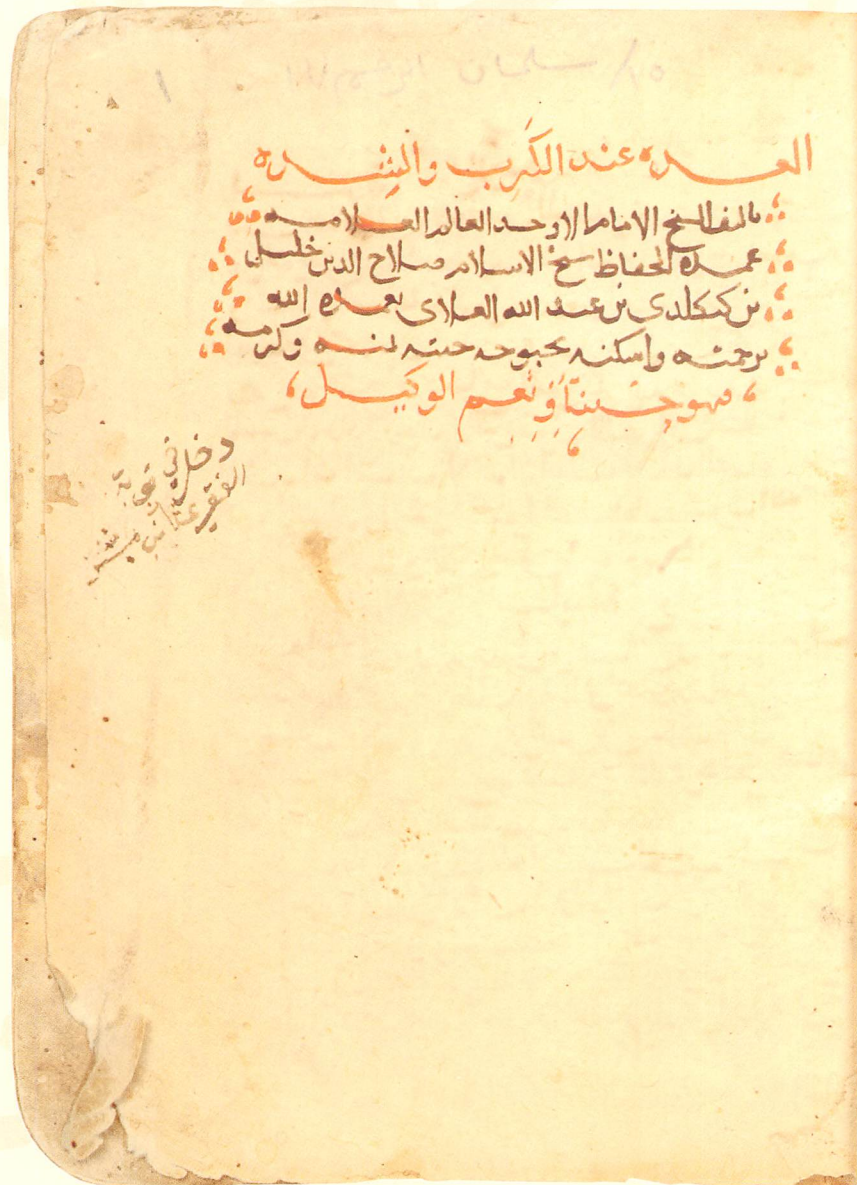 ١
العده عند الكَرِب والشِده
تاليف الشيخ الامام الاوحد العالم العلامه
عمدة الحفاظ شيخ الاسلام صلاح الدين خليل
بن كيكلدي بن عبد الله العلاى تغمده الله
برحمته واسكنه بحبوحه جنته بمنه وكرمه
فهو حسبنا وَنِعم الوكيل
دخل في نوبة
الفقير عثمان